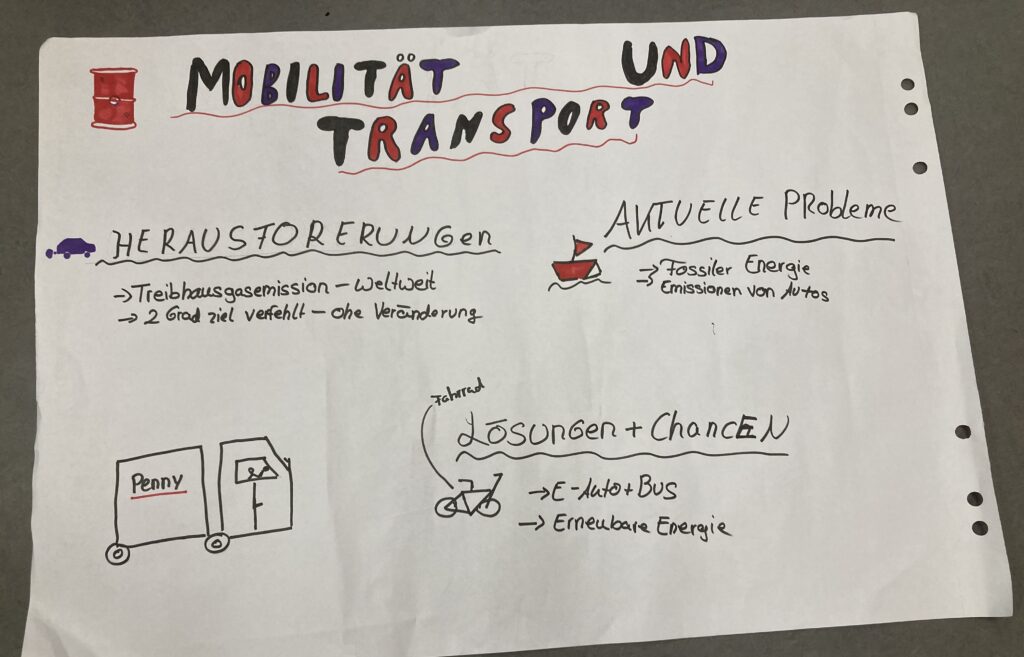 MOBILITÄT UND
TRANSPORT
HERAUSTORERUNGen
→ Treibhausgasemission – weltweit
→ 2 Grad ziel verfehlt – ohe Veränderung
AKTUELLE PRObleme
→ Fossiler Energie
→ Emissionen von Autos
Penny
Fahrrad
LÖSUNGen + ChancEN
→ E-Auto + Bus
→ Erneubare Energie